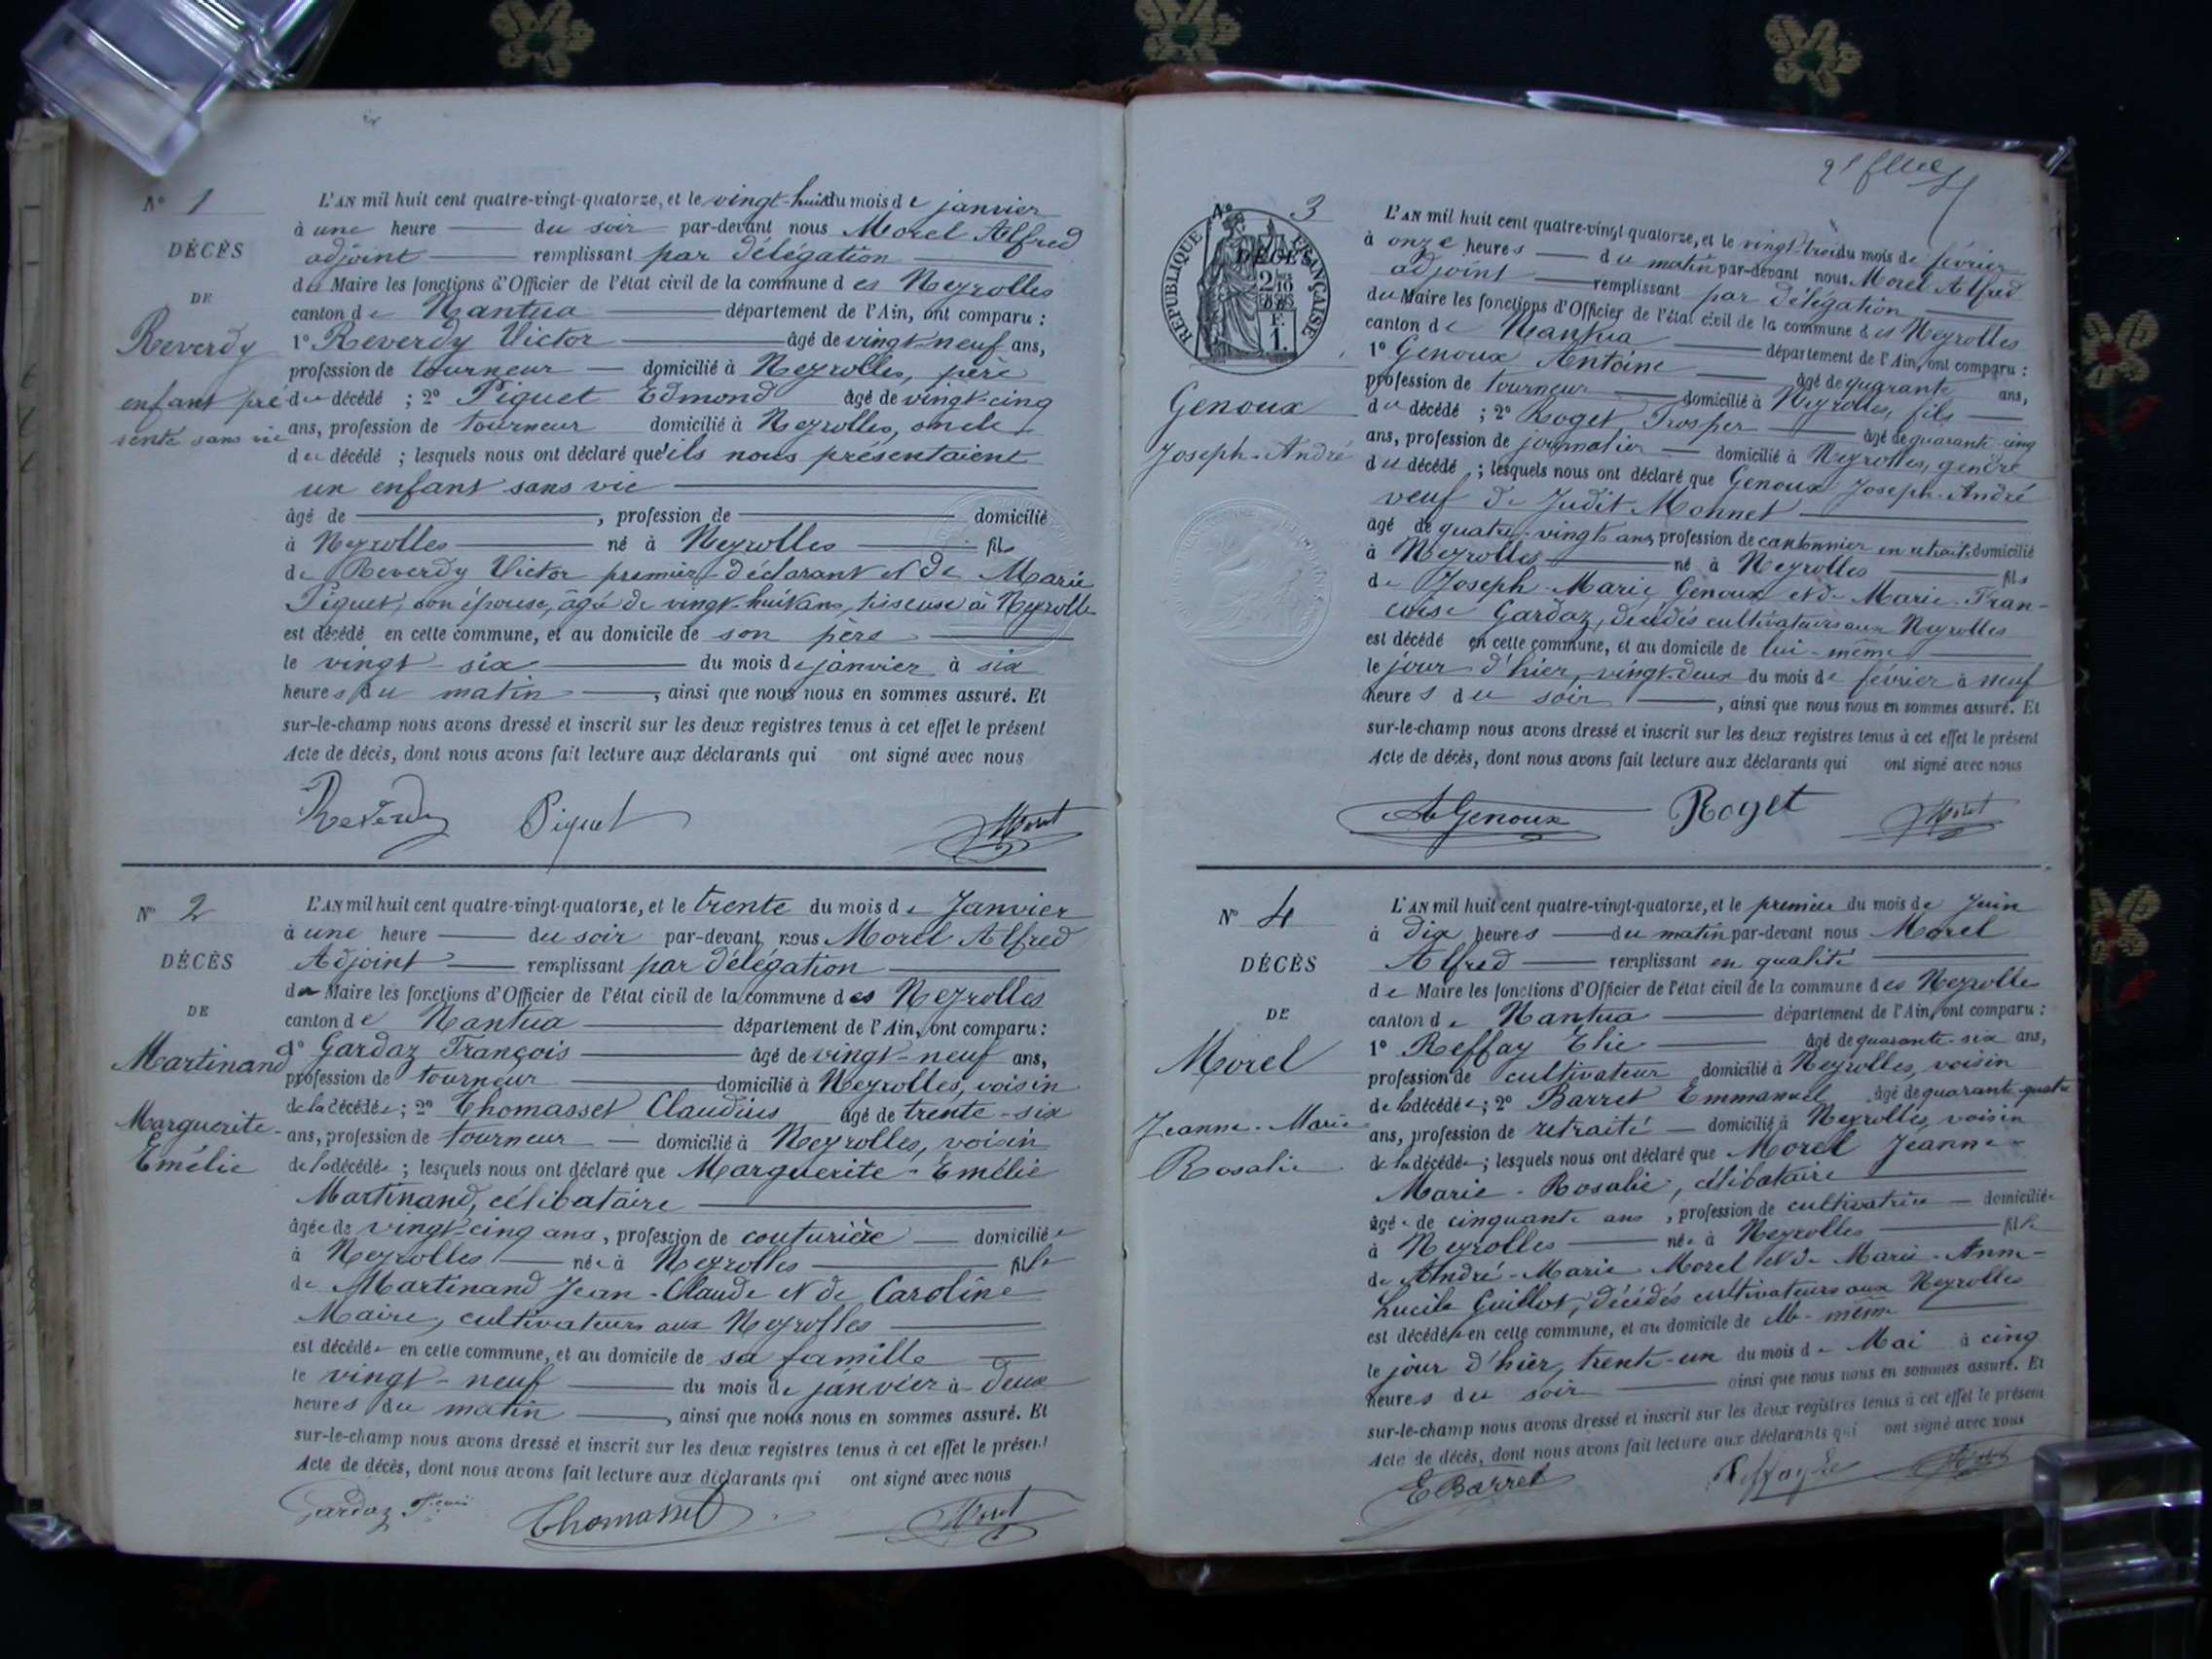 N° 1
DÉCÈS
DE
Reverdy
enfant pré
senté sans vie
L'AN mil huit cent quatre-vingt-quatorze, et le vingt-huit du mois de janvier
à une heure du soir par-devant nous Morel Alfred
adjoint remplissant par délégation
du Maire les fonctions d'Officier de l'état civil de la commune des Neyrolles
canton de Nantua département de l'Ain, ont comparu :
1° Reverdy Victor âgé de vingt-neuf ans,
profession de tourneur domicilié à Neyrolles, père
du décédé ; 2° Piquet Edmond âgé de vingt-cinq
ans, profession de tourneur domicilié à Neyrolles, oncle
du décédé ; lesquels nous ont déclaré qu'ils nous présentaient
un enfant sans vie
âgé de , profession de domicilié
à Neyrolles né à Neyrolles fils
de Reverdy Victor premier déclarant et de Marie
Piquet, son épouse, âgée de vingt-huit ans, tisseuse à Neyrolles
est décédé en cette commune, et au domicile de son père
le vingt-six du mois de janvier à six
heures du matin , ainsi que nous nous en sommes assuré. Et
sur-le-champ nous avons dressé et inscrit sur les deux registres tenus à cet effet le présent
Acte de décès, dont nous avons fait lecture aux déclarants qui ont signé avec nous
Reverdy Piquet Morel
N° 2
DÉCÈS
DE
Martinand
Marguerite-
Emélie
L'AN mil huit cent quatre-vingt-quatorze, et le trente du mois de Janvier
à une heure du soir par-devant nous Morel Alfred
Adjoint remplissant par délégation
du Maire les fonctions d'Officier de l'état civil de la commune des Neyrolles
canton de Nantua département de l'Ain, ont comparu :
1° Gardaz François âgé de vingt-neuf ans,
profession de tourneur domicilié à Neyrolles, voisin
de la décédée ; 2° Thomasset Claudius âgé de trente-six
ans, profession de tourneur domicilié à Neyrolles, voisin
de la décédée ; lesquels nous ont déclaré que Marguerite-Emélie
Martinand, célibataire
âgée de vingt-cinq ans, profession de couturière domiciliée
à Neyrolles née à Neyrolles fille
de Martinand Jean-Claude et de Caroline
Maire, cultivateurs aux Neyrolles
est décédée en cette commune, et au domicile de sa famille
le vingt-neuf du mois de janvier à deux
heures du matin , ainsi que nous nous en sommes assuré. Et
sur-le-champ nous avons dressé et inscrit sur les deux registres tenus à cet effet le présent
Acte de décès, dont nous avons fait lecture aux déclarants qui ont signé avec nous
Gardaz Thomasset Morel
N° 3
DÉCÈS
RÉPUBLIQUE FRANÇAISE
2/10 EN SUS
1 F.
Genoux
Joseph-André
L'AN mil huit cent quatre-vingt quatorze, et le vingt-trois du mois de février
à onze heures du matin par-devant nous Morel Alfred
adjoint remplissant par délégation
du Maire les fonctions d'Officier de l'état civil de la commune des Neyrolles
canton de Nantua département de l'Ain, ont comparu :
1° Genoux Antoine âgé de quarante ans,
profession de tourneur domicilié à Neyrolles, fils
du décédé ; 2° Roget Prosper âgé de quarante-cinq
ans, profession de journalier domicilié à Neyrolles, gendre
du décédé ; lesquels nous ont déclaré que Genoux Joseph-André
veuf de Judit Monnet
âgé de quatre-vingts ans, profession de cantonnier en retraite domicilié
à Neyrolles né à Neyrolles fils
de Joseph-Marie Genoux et de Marie-Fran-
çoise Gardaz, décédés cultivateurs aux Neyrolles
est décédé en cette commune, et au domicile de lui-même
le jour d'hier, vingt-deux du mois de février à neuf
heures du soir , ainsi que nous nous en sommes assuré. Et
sur-le-champ nous avons dressé et inscrit sur les deux registres tenus à cet effet le présent
Acte de décès, dont nous avons fait lecture aux déclarants qui ont signé avec nous
A Genoux Roget Morel
N° 4
DÉCÈS
DE
Morel
Jeanne-Marie
Rosalie
L'AN mil huit cent quatre-vingt-quatorze, et le premier du mois de Juin
à dix heures du matin par-devant nous Morel
Alfred remplissant en qualité
de Maire les fonctions d'Officier de l'état civil de la commune des Neyrolles
canton de Nantua département de l'Ain, ont comparu :
1° Reffay Elie âgé de quarante-six ans,
profession de cultivateur domicilié à Neyrolles, voisin
de la décédée ; 2° Barret Emmanuel âgé de quarante-quatre
ans, profession de retraité domicilié à Neyrolles, voisin
de la décédée ; lesquels nous ont déclaré que Morel Jeanne-
Marie-Rosalie, célibataire
âgée de cinquante ans , profession de cultivatrice domiciliée
à Neyrolles née à Neyrolles fille
de André-Marie Morel et de Marie-Anne-
Lucile Guillot, décédés cultivateurs aux Neyrolles
est décédée en cette commune, et au domicile de elle-même
le jour d'hier, trente-un du mois de Mai à cinq
heures du soir ainsi que nous nous en sommes assuré. Et
sur-le-champ nous avons dressé et inscrit sur les deux registres tenus à cet effet le présent
Acte de décès, dont nous avons fait lecture aux déclarants qui ont signé avec nous
E Barret Reffay Elie Morel